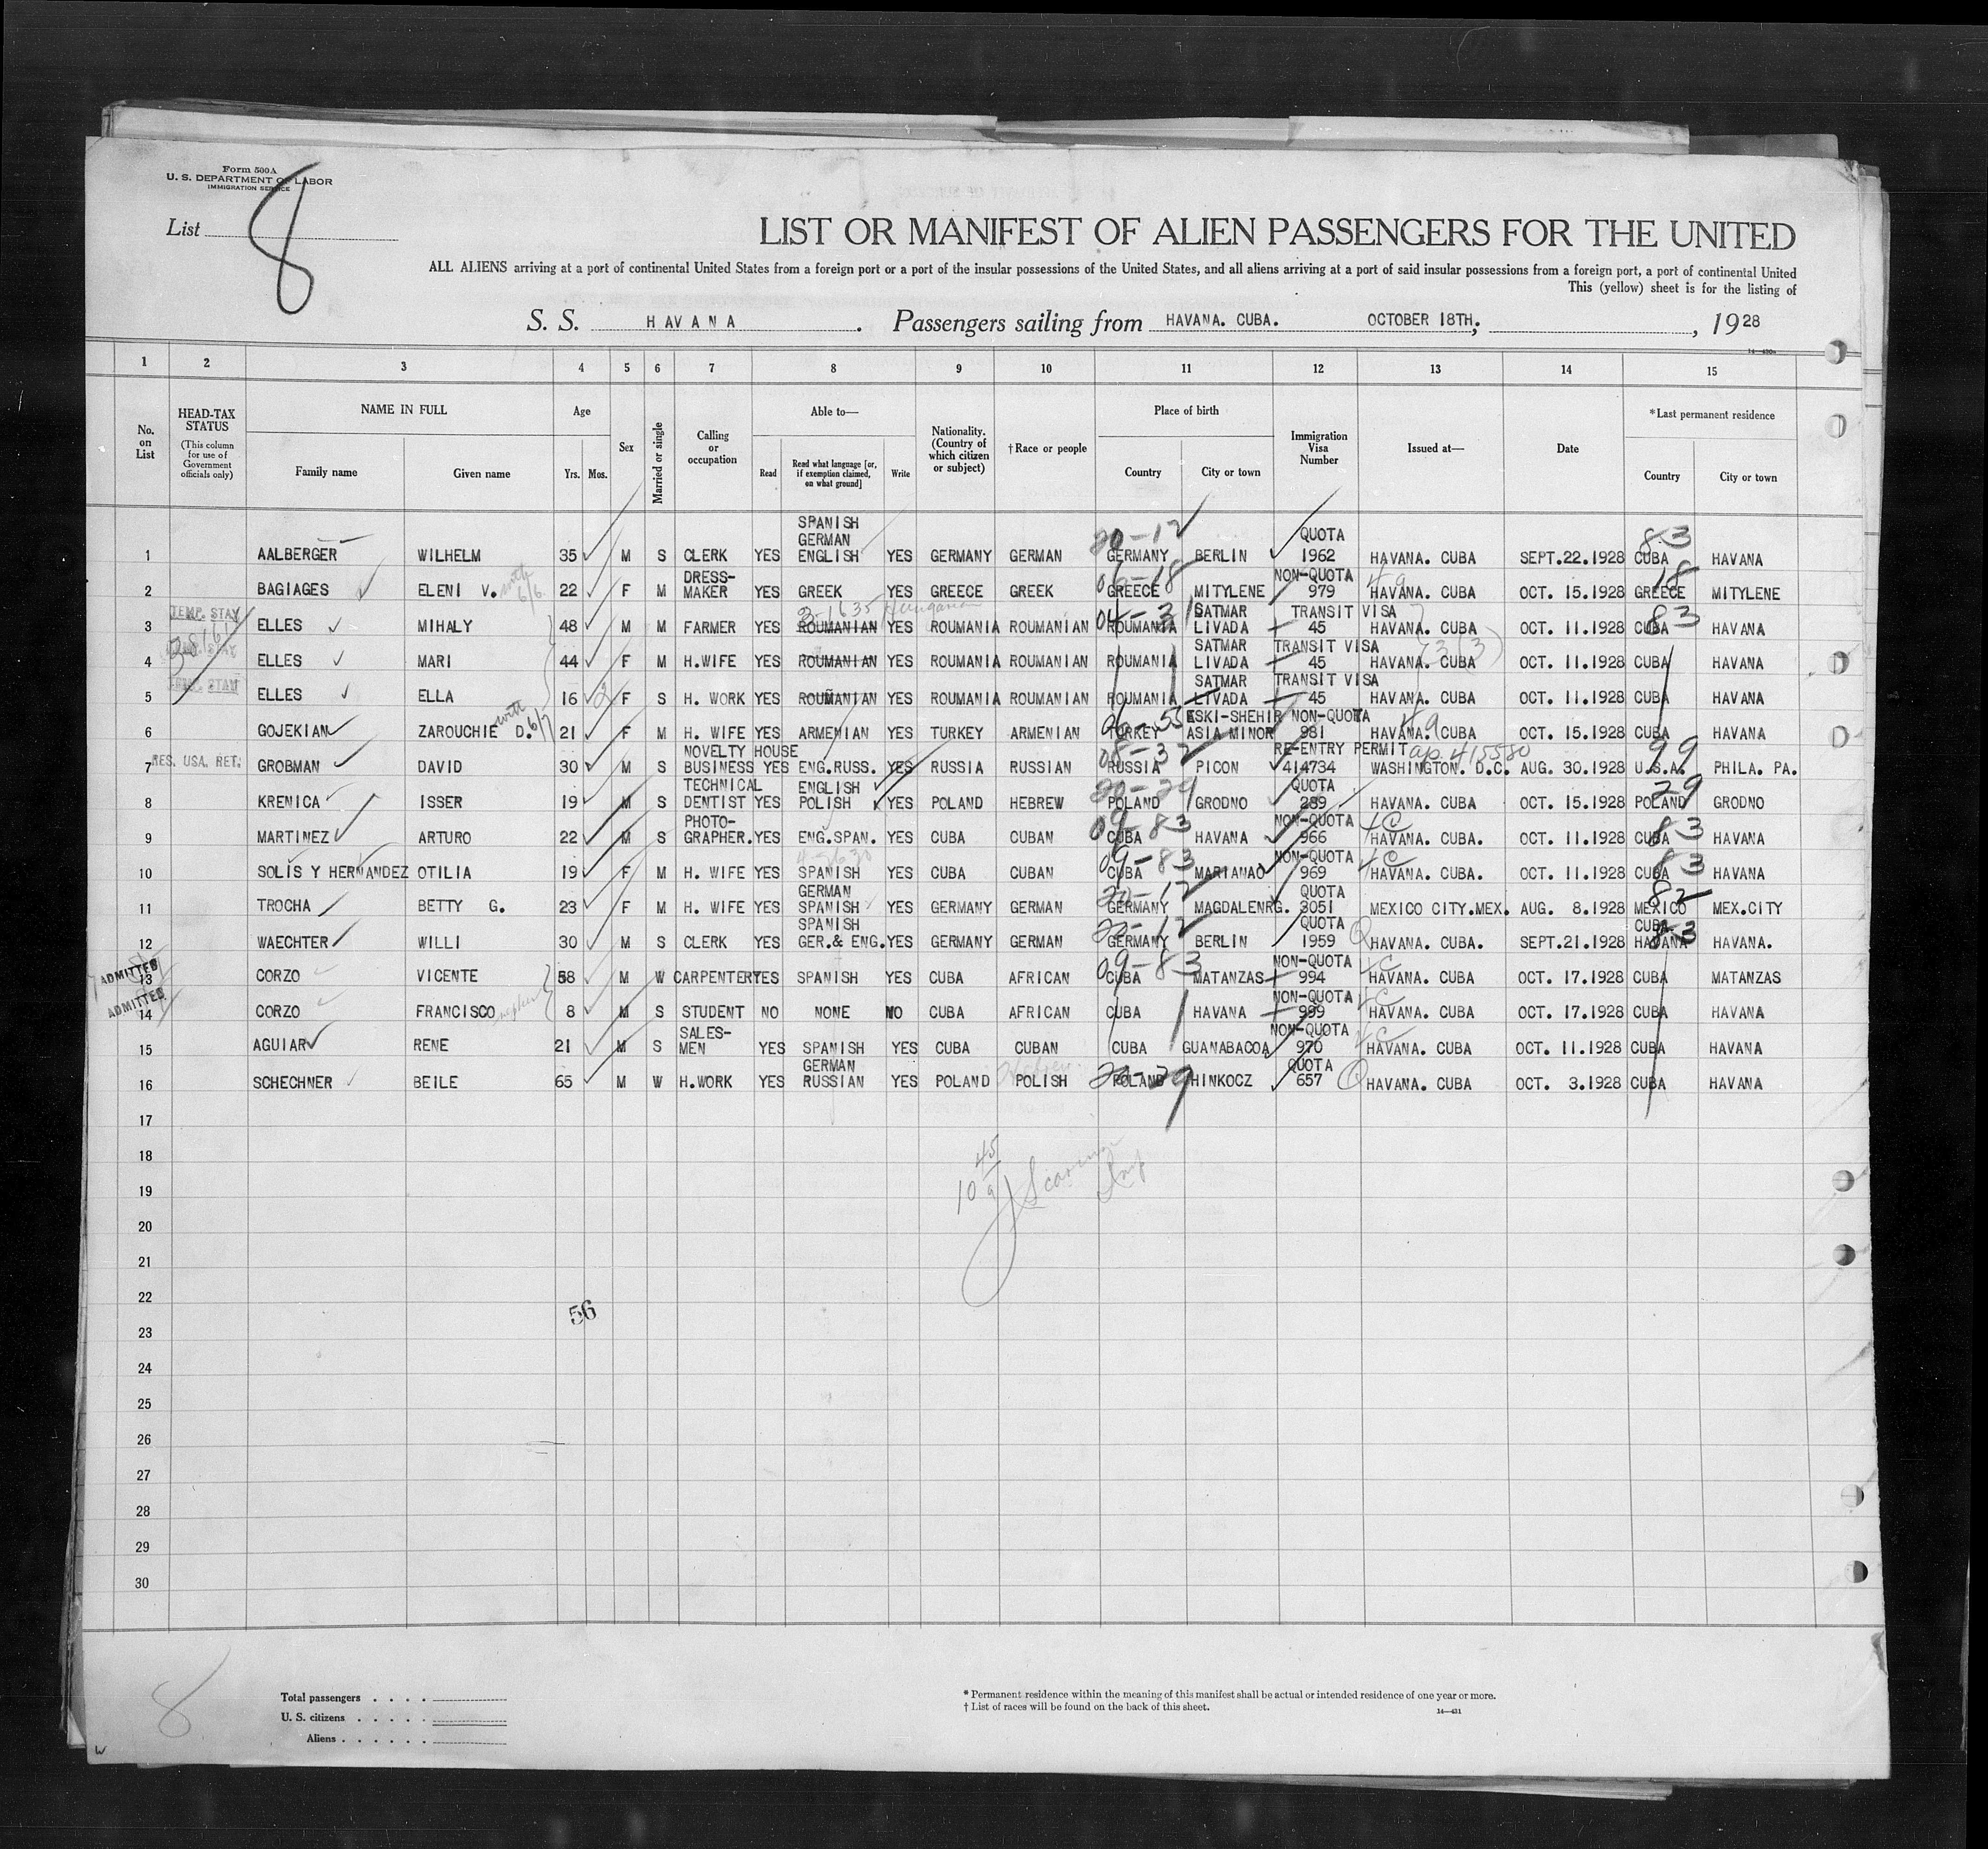 Form 500A
U. S. DEPARTMENT OF LABOR
IMMIGRATION SERVICE
List 8
LIST OR MANIFEST OF ALIEN PASSENGERS FOR THE UNITED
ALL ALIENS arriving at a port of continental United States from a foreign port or a port of the insular possessions of the United States, and all aliens arriving at a port of said insular possessions from a foreign port, a port of continental United
This (yellow) sheet is for the listing of
S. S. HAVANA. Passengers sailing from HAVANA. CUBA. OCTOBER 18TH; , 1928
1 2 3 4 5 6 7 8 9 10 11 12 13 14 15
No. on List
HEAD-TAX STATUS (This column for use of Government officials only)
NAME IN FULL
Family name Given name
Age
Yrs. Mos.
Sex
Married or single
Calling or occupation
Able to—
Read
Read what language [or, if exemption claimed, on what ground]
Write
Nationality. (Country of which citizen or subject)
† Race or people
Place of birth
Country City or town
Immigration Visa Number
Issued at—
Date
* Last permanent residence
Country City or town
1 AALBERGER WILHELM 35 M S CLERK YES SPANISH GERMAN ENGLISH YES GERMANY GERMAN 20-12 GERMANY BERLIN QUOTA 1962 HAVANA. CUBA SEPT.22.1928 83 CUBA HAVANA
2 BAGIAGES ELENI V. with 6/6 22 F M DRESS-MAKER YES GREEK YES GREECE GREEK 06-18 GREECE MITYLENE NON-QUOTA 979 4a HAVANA. CUBA OCT. 15.1928 18 GREECE MITYLENE
3 TEMP. STAY ELLES MIHALY 48 M M FARMER YES ROUMANIAN Hungarian YES ROUMANIA ROUMANIAN 04-31 ROUMANIA SATMAR LIVADA TRANSIT VISA 45 HAVANA. CUBA OCT. 11.1928 83 CUBA HAVANA
4 ELLES MARI 44 F M H.WIFE YES ROUMANIAN YES ROUMANIA ROUMANIAN ROUMANIA SATMAR LIVADA TRANSIT VISA 45 HAVANA. CUBA 3(3) OCT. 11.1928 CUBA HAVANA
5 TEMP. STAY ELLES ELLA 16 F S H. WORK YES ROUMANIAN YES ROUMANIA ROUMANIAN ROUMANIA SATMAR LIVADA TRANSIT VISA 45 HAVANA. CUBA OCT. 11.1928 CUBA HAVANA
6 GOJEKIAN ZAROUCHIE D. with 6/7 21 F M H. WIFE YES ARMENIAN YES TURKEY ARMENIAN TURKEY ESKI-SHEHIR ASIA MINOR NON-QUOTA 981 4a HAVANA. CUBA OCT. 15.1928 CUBA HAVANA
7 RES. USA. RET. GROBMAN DAVID 30 M S NOVELTY HOUSE BUSINESS YES ENG.RUSS. YES RUSSIA RUSSIAN 08-32 RUSSIA PICON RE-ENTRY PERMIT 414734 ap. 415580 WASHINGTON. D.C. AUG. 30.1928 99 U.S.A. PHILA. PA.
8 KRENICA ISSER 19 M S TECHNICAL DENTIST YES ENGLISH POLISH YES POLAND HEBREW 20-29 POLAND GRODNO QUOTA 289 HAVANA. CUBA OCT. 15.1928 29 POLAND GRODNO
9 MARTINEZ ARTURO 22 M S PHOTO-GRAPHER. YES ENG.SPAN. YES CUBA CUBAN 09-83 CUBA HAVANA NON-QUOTA 966 4C HAVANA. CUBA. OCT. 11.1928 83 CUBA HAVANA
10 SOLIS Y HERNANDEZ OTILIA 19 F M H. WIFE YES SPANISH YES CUBA CUBAN 09-83 CUBA MARIANAO NON-QUOTA 969 4C HAVANA. CUBA. OCT. 11.1928 83 CUBA HAVANA
11 TROCHA BETTY G. 23 F M H. WIFE YES GERMAN SPANISH YES GERMANY GERMAN 20-12 GERMANY MAGDALENRG. QUOTA 3051 MEXICO CITY.MEX. AUG. 8.1928 82 MEXICO MEX.CITY
12 WAECHTER WILLI 30 M S CLERK YES SPANISH GER.& ENG. YES GERMANY GERMAN 20-12 GERMANY BERLIN QUOTA 1959 Q HAVANA. CUBA. SEPT.21.1928 CUBA 83 HAVANA HAVANA.
ADMITTED 13 CORZO VICENTE 58 M W CARPENTER YES SPANISH YES CUBA AFRICAN 09-83 CUBA MATANZAS NON-QUOTA 994 4C HAVANA. CUBA OCT. 17.1928 CUBA MATANZAS
ADMITTED 14 CORZO FRANCISCO 8 M S STUDENT NO NONE NO CUBA AFRICAN CUBA HAVANA NON-QUOTA 999 4C HAVANA. CUBA OCT. 17.1928 CUBA HAVANA
15 AGUIAR RENE 21 M S SALES-MEN YES SPANISH YES CUBA CUBAN CUBA GUANABACOA NON-QUOTA 970 4C HAVANA. CUBA OCT. 11.1928 CUBA HAVANA
16 SCHECHNER BEILE 65 M W H.WORK YES GERMAN RUSSIAN YES POLAND POLISH Hebrew 20-29 POLAND HINKOCZ QUOTA 657 Q HAVANA. CUBA OCT. 3.1928 CUBA HAVANA
17
18
19
20
21
22
56
23
24
25
26
27
28
29
30
8
Total passengers . . . .
U. S. citizens . . . . .
Aliens . . . . . .
* Permanent residence within the meaning of this manifest shall be actual or intended residence of one year or more.
† List of races will be found on the back of this sheet.
14—431
W